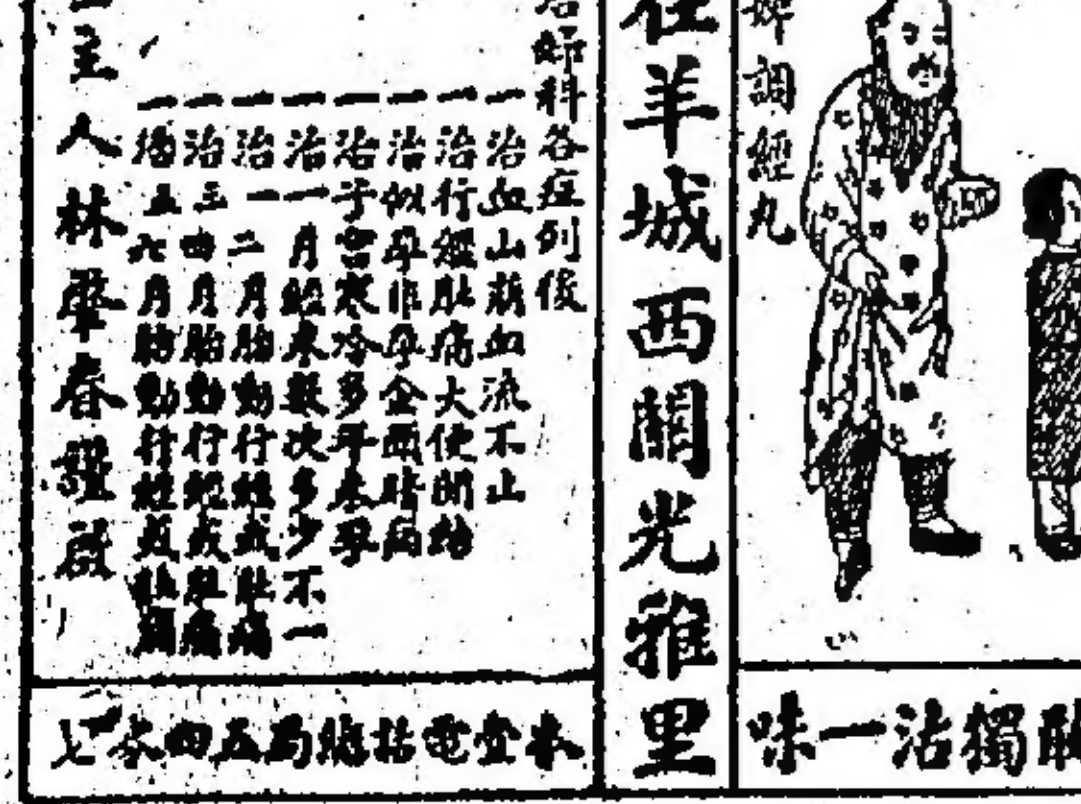 調經丸
獨沽一味
在羊城西關光雅里
治婦科各症列後
一治血山崩血流不止
一治行經肚痛大便閉結
一治似孕非孕全面暗病
一治子宮寒冷多年未孕
一治一月經來數次多少不一
一治一二月胎動行經或肚痛
一治三四月胎動行經或肚痛
一治五六月胎動行經或肚痛
主人林肇春謹啟
本堂電話總局五四零一七